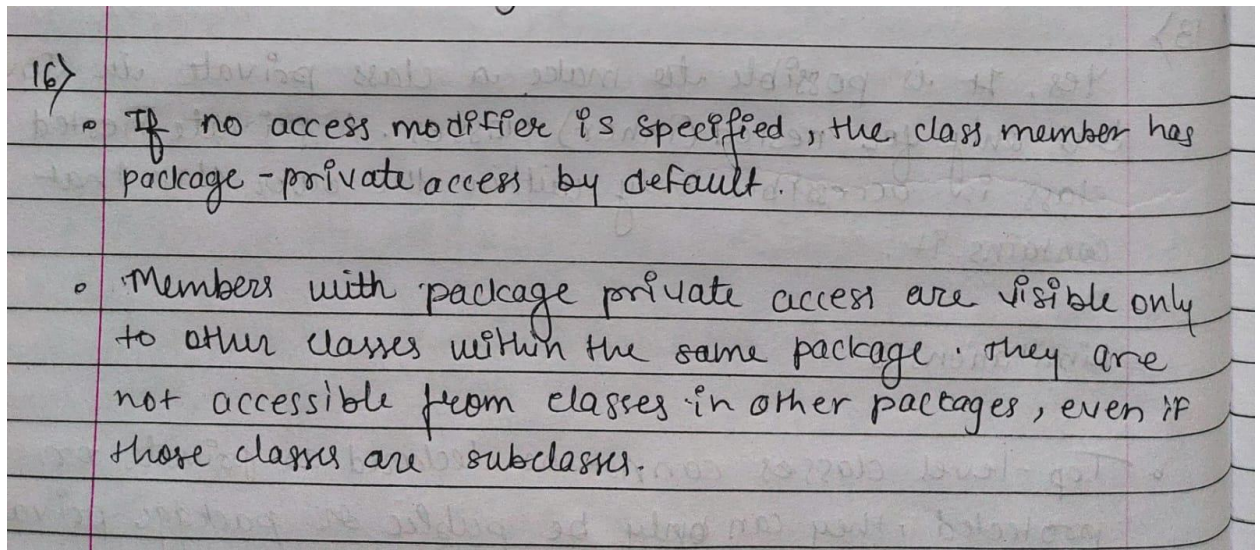 16>
• If no access modifier is specified, the class member has
package-private access by default.
• Members with package private access are visible only
to other classes within the same package. They are
not accessible from classes in other packages, even if
those classes are subclasses.